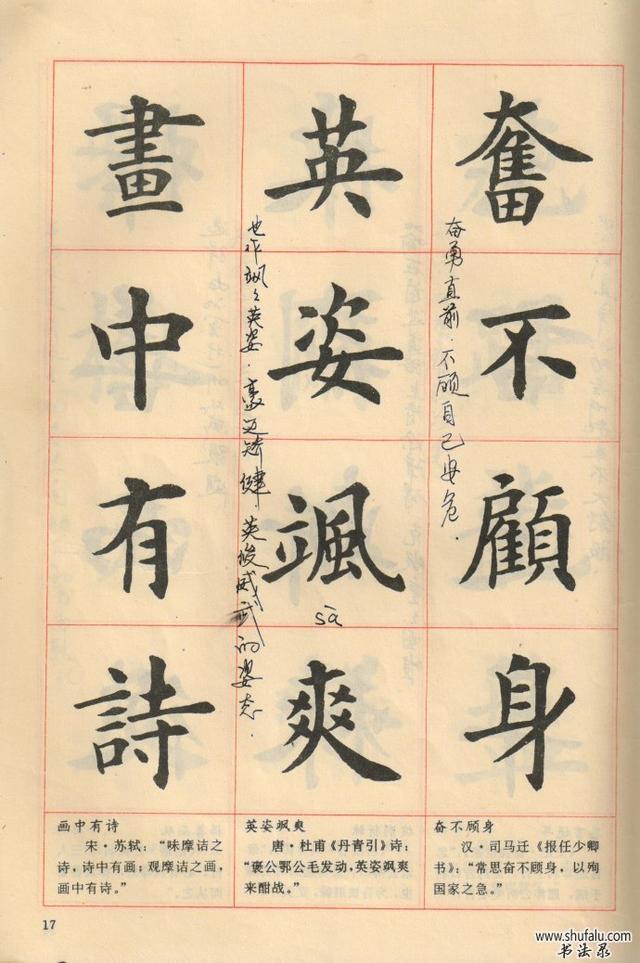 奮不顧身
英姿颯爽
畫中有詩
奋勇直前·不顾自己安危·
也作飒飒英姿·豪迈矫健 英俊威武的姿态·
sà
画中有诗
宋·苏轼：“味摩诘之
诗，诗中有画；观摩诘之画，
画中有诗。”
英姿飒爽
唐·杜甫《丹青引》诗：
“褒公鄂公毛发动，英姿飒爽
来酣战。”
奋不顾身
汉·司马迁《报任少卿
书》：“常思奋不顾身，以殉
国家之急。”
17
www.shufalu.com
书法录